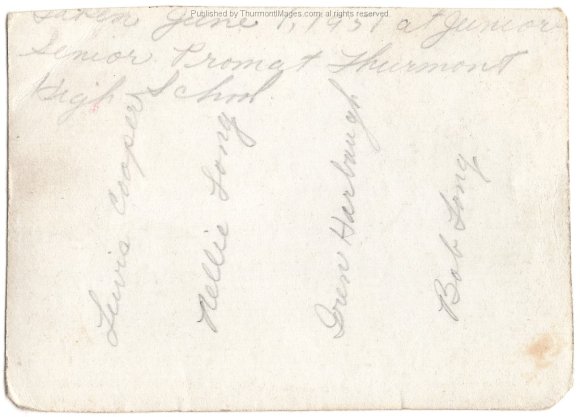 Published by ThurmontImages.com, all rights reserved
Taken June 1, 1951 at Junior
Senior Prom at Thurmont
High School
Lewis Cooper
Nellie Long
Iren Harbaugh
Bob Long